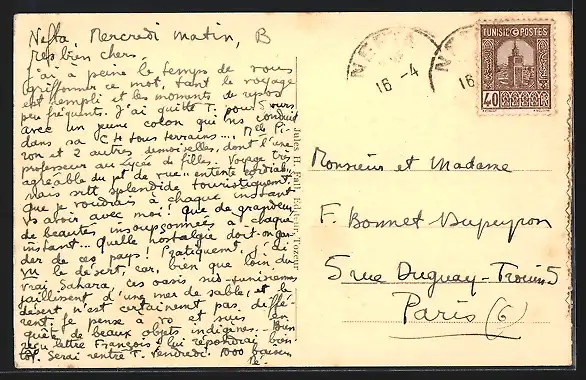 Nefta, Mercredi matin, B
Très bien chers,
J'ai à peine le temps de vous
griffonner ce mot, tant le voyage
est rempli et les moments de repos
peu fréquents. J'ai quitté T. pour 5 jours
avec un jeune colon qui ns conduit
dans sa C4 tous terrains... Melle Pi-
ron et 2 autres demoiselles, dont l'une
professeur au Lycée de filles. Voyage très
agréable du pt de vue "entente cordiale"
mais sitt splendide touristiquement.
Que je voudrais à chaque instant
vs aboir avec moi! Que de grandeur
de beautés insoupçonnées à chaque
instant... Quelle nostalgie doit-on gar-
der de ces pays! Pratiquement j'ai
vu le désert, car, bien que loin du
vrai Sahara, ces oasis sud-tunisiennes
jaillissent d'une mer de sable, et le
désert n'est certainement pas diffé-
rent. Je pense à Jo et suis en
quête de beaux objets indigènes. Bien
reçu lettre François, lui répondrai bien-
tôt. Serai rentré T. Vendredi. 1000 baisers
Jules H. Fall, Editeur, Tozeur
NEFTA
16 -4
NE
16
TUNISIE POSTES
40
Monsieur et Madame
F. Bonnet-Dupeyron
5 rue Duguay-Trouin 5
Paris (6)